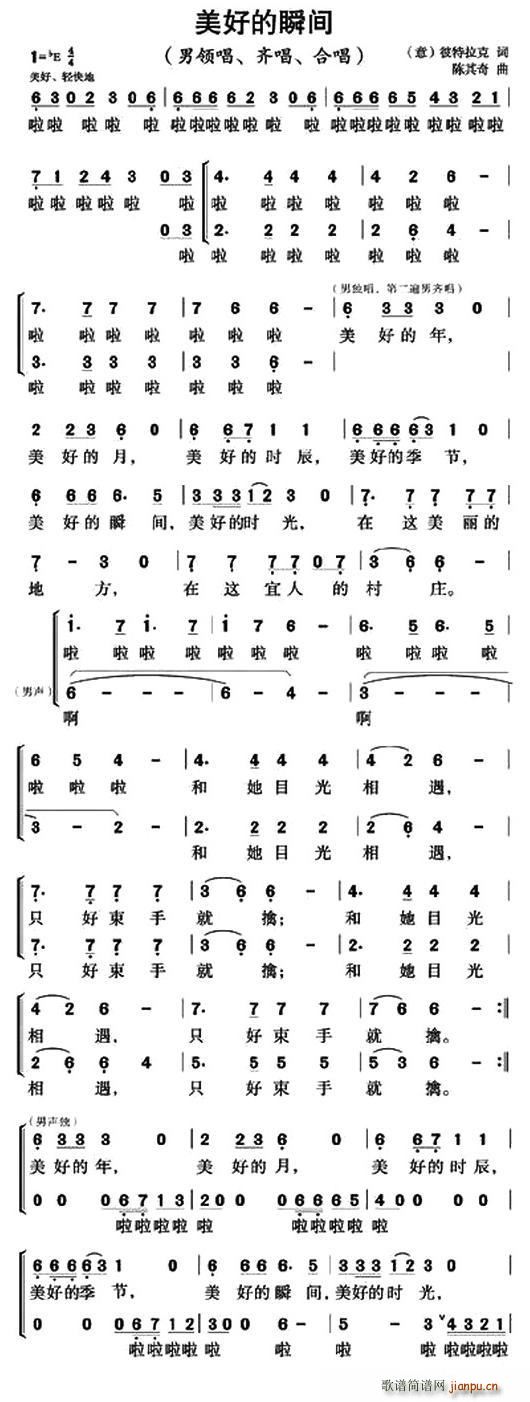 美好的瞬间
(男领唱、齐唱、合唱)
1=♭E 4/4
(意)彼特拉克 词
陈其奇 曲
美好、轻快地
6 3 0 2 3 0 6 | 6 6 6 6 6 2 3 0 6 | 6 6 6 6 5 4 3 2 1
啦啦 啦 啦 啦啦啦啦啦 啦 啦啦啦啦啦啦啦啦啦
7 1 2 4 3 0 3 | 4. 4 4 4 | 4 2 6 - |
啦啦啦啦啦 啦 啦 啦啦啦 啦 啦 啦
0 3 | 2. 2 2 2 | 2 6 4 - |
啦 啦 啦啦啦 啦 啦 啦
(男独唱,第二遍男齐唱)
7. 7 7 7 | 7 6 6 - | 6 3 3 3 0
啦 啦 啦 啦 啦 啦 啦 美 好的年,
3. 3 3 3 | 3 3 6 - |
啦 啦 啦 啦 啦 啦 啦
2 2 3 6 0 | 6 6 7 1 1 | 6 6 6 6 3 1 0
美 好的月, 美 好的时辰, 美好的季 节,
6 6 6 6. 5 | 3 3 3 1 2 3 0 | 7. 7 7 7 7
美 好的瞬 间,美好的时 光, 在 这美 丽的
7 - 3 0 | 7 7 7 7 0 7 | 3 6 6 - |
地 方, 在 这 宜人 的 村 庄。
i. 7 i. 7 | i 7 6 - | 6. 5 6. 5 |
啦 啦 啦 啦 啦 啦 啦 啦 啦 啦 啦
(男声) 6 - - - | 6 - 4 - | 3 - - - |
啊 啊
6 5 4 - | 4. 4 4 4 | 4 2 6 - |
啦 啦 啦 和 她目光 相 遇,
3 - 2 - | 2. 2 2 2 | 2 6 4 - |
和 她目光 相 遇,
7. 7 7 7 | 3 6 6 - | 4. 4 4 4
只 好束手 就 擒; 和 她目光
7. 7 7 7 | 3 6 6 - | 2. 2 2 2
只 好束手 就 擒; 和 她目光
4 2 6 - | 7. 7 7 7 | 7 6 6 - :‖
相 遇, 只 好束手 就 擒。
2 6 6 4 | 5. 5 5 5 | 5 3 6 - :‖
相 遇, 只 好束手 就 擒。
(男声独)
6 3 3 3 0 | 2 2 3 6 0 | 6 6 7 1 1
美 好的年, 美 好的月, 美 好的时辰,
0 0 0 6 7 1 3 | 2 0 0 0 0 6 6 6 6 5 | 4 0 0 0 0
啦啦啦啦 啦 啦啦啦啦 啦
6 6 6 6 3 1 0 | 6 6 6 6. 5 | 3 3 3 1 2 3 0
美好的季 节, 美 好的瞬 间,美好的时 光,
0 0 0 6 7 1 2 | 3 0 0 6 5 | 5 - 3 ∨ 4 3 2 1
啦啦啦啦 啦 啦 啦 啦 啦啦啦啦
歌谱简谱网
jianpu.cn